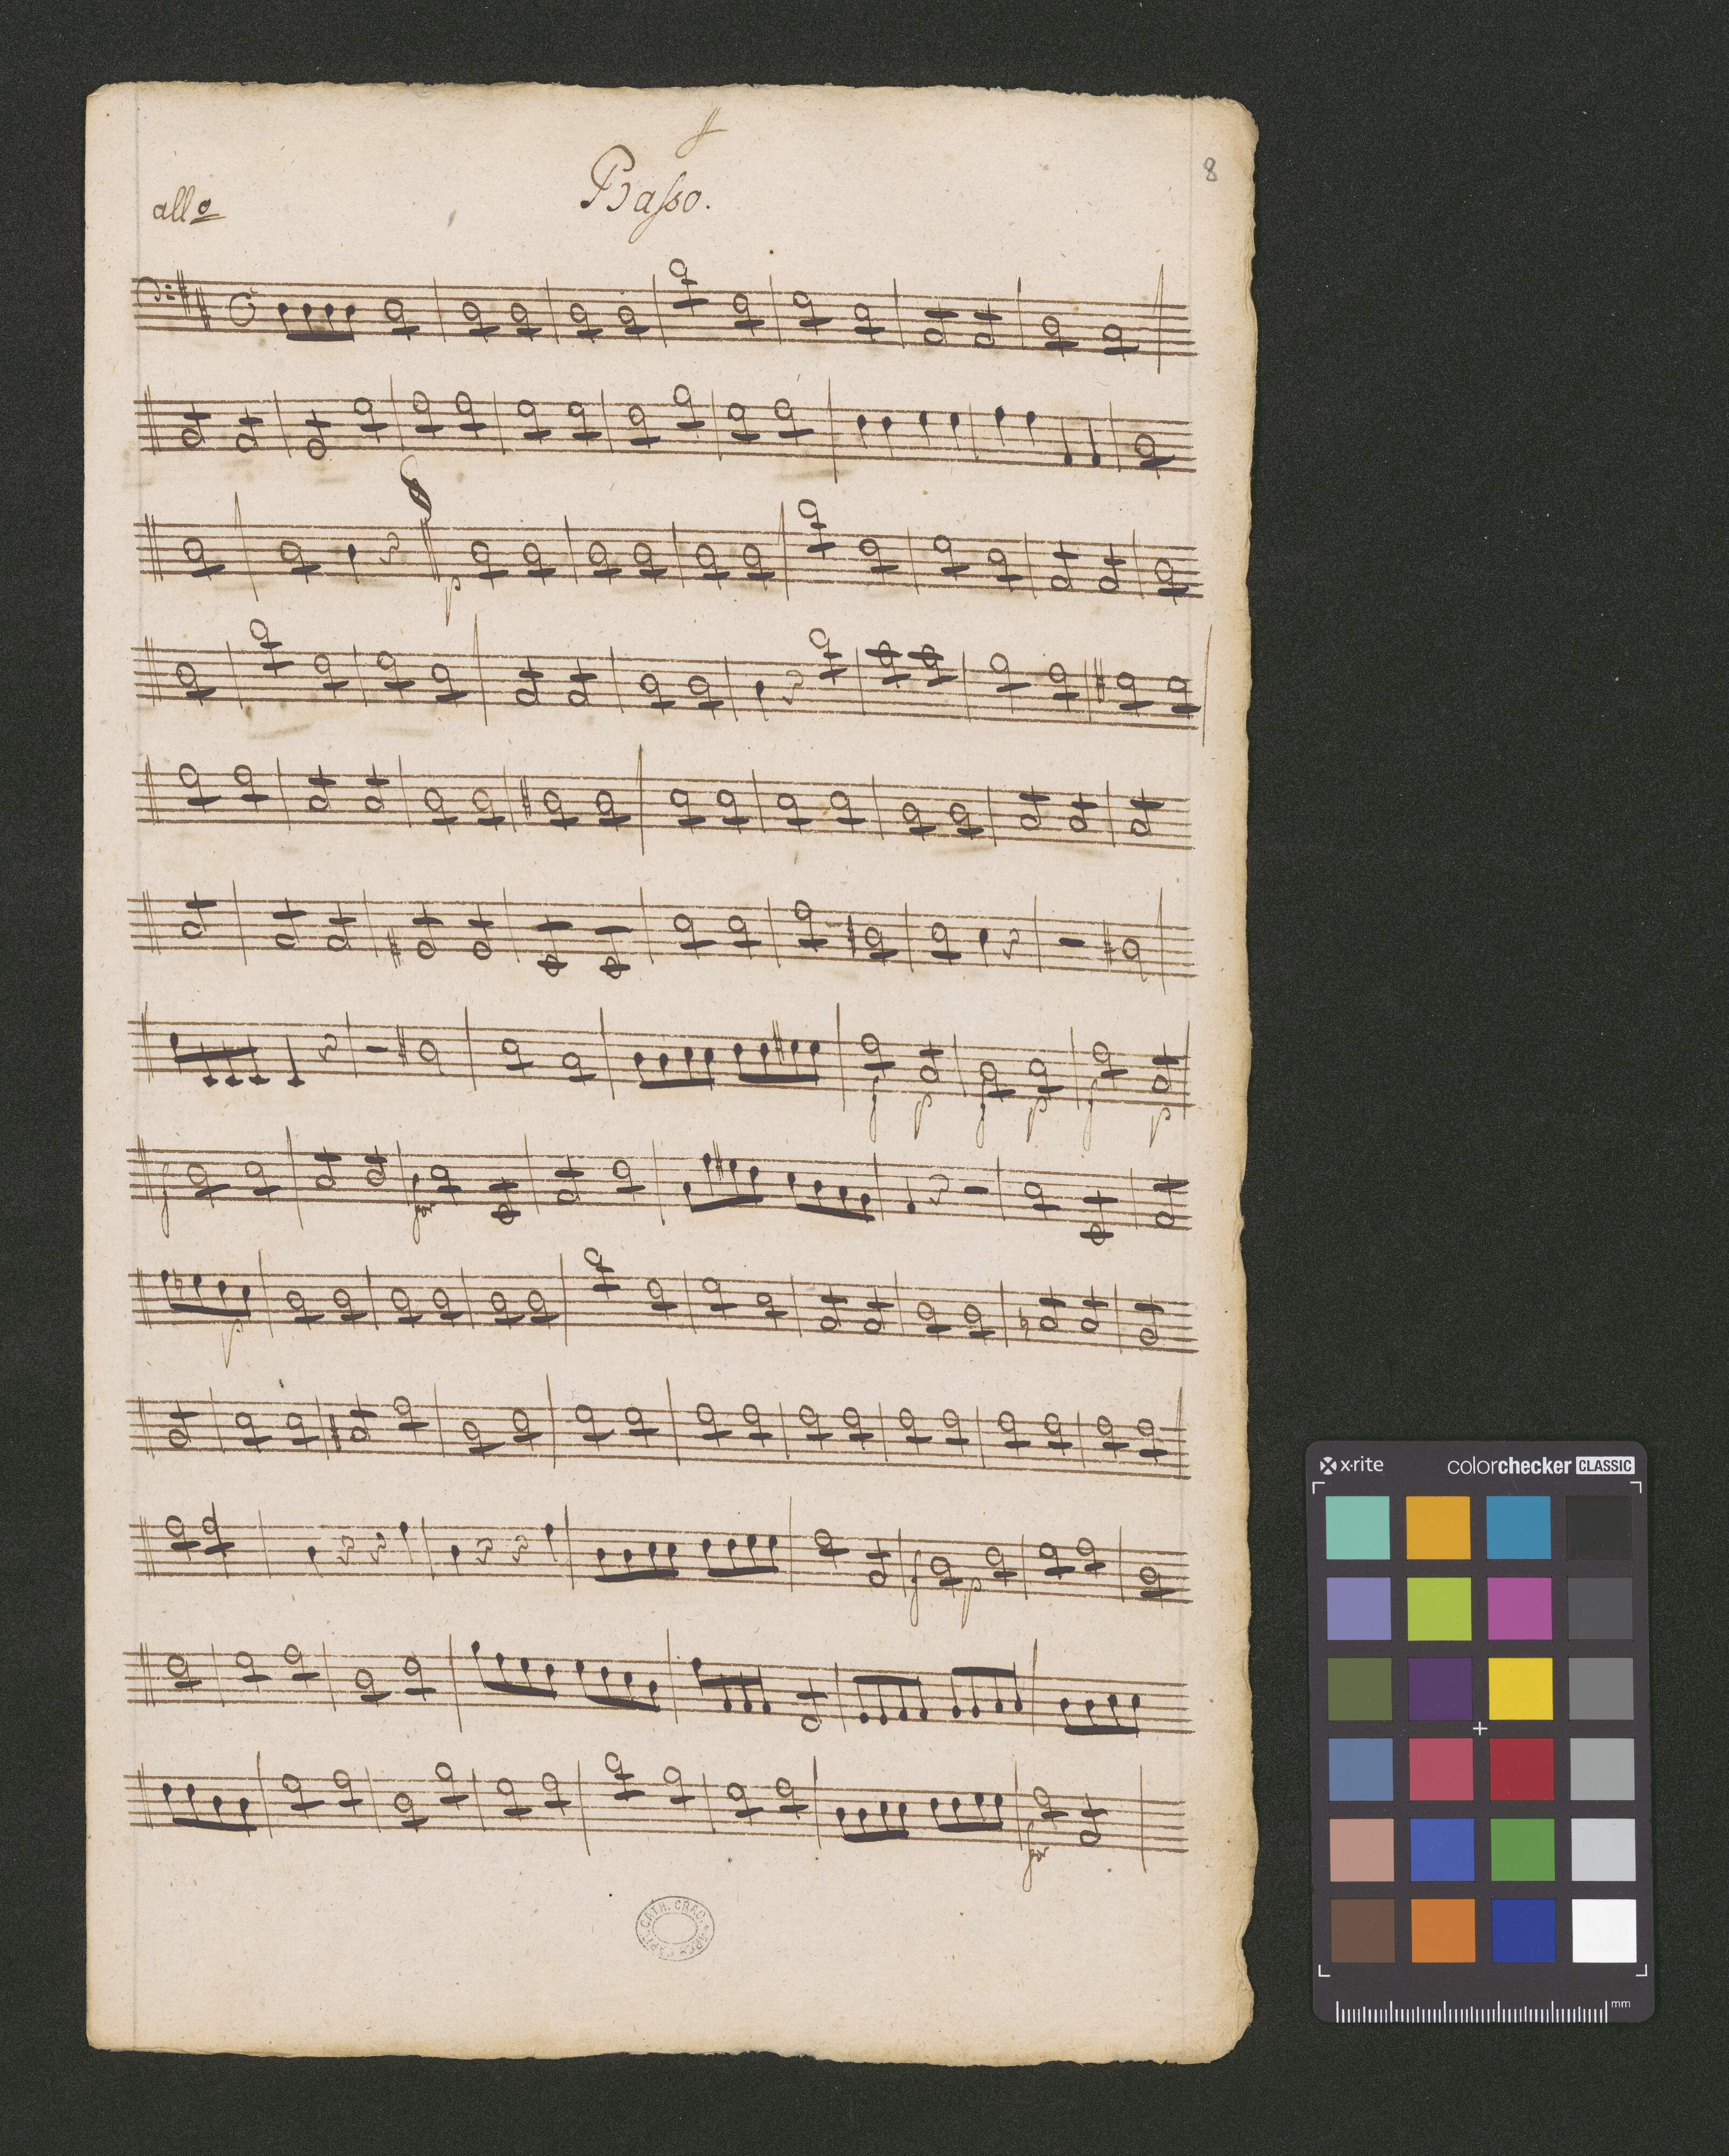 8
Basso.
allo
p
f p f p f p
f for
p
f p
for
CATH. CRAC.
x-rite colorchecker CLASSIC
mm